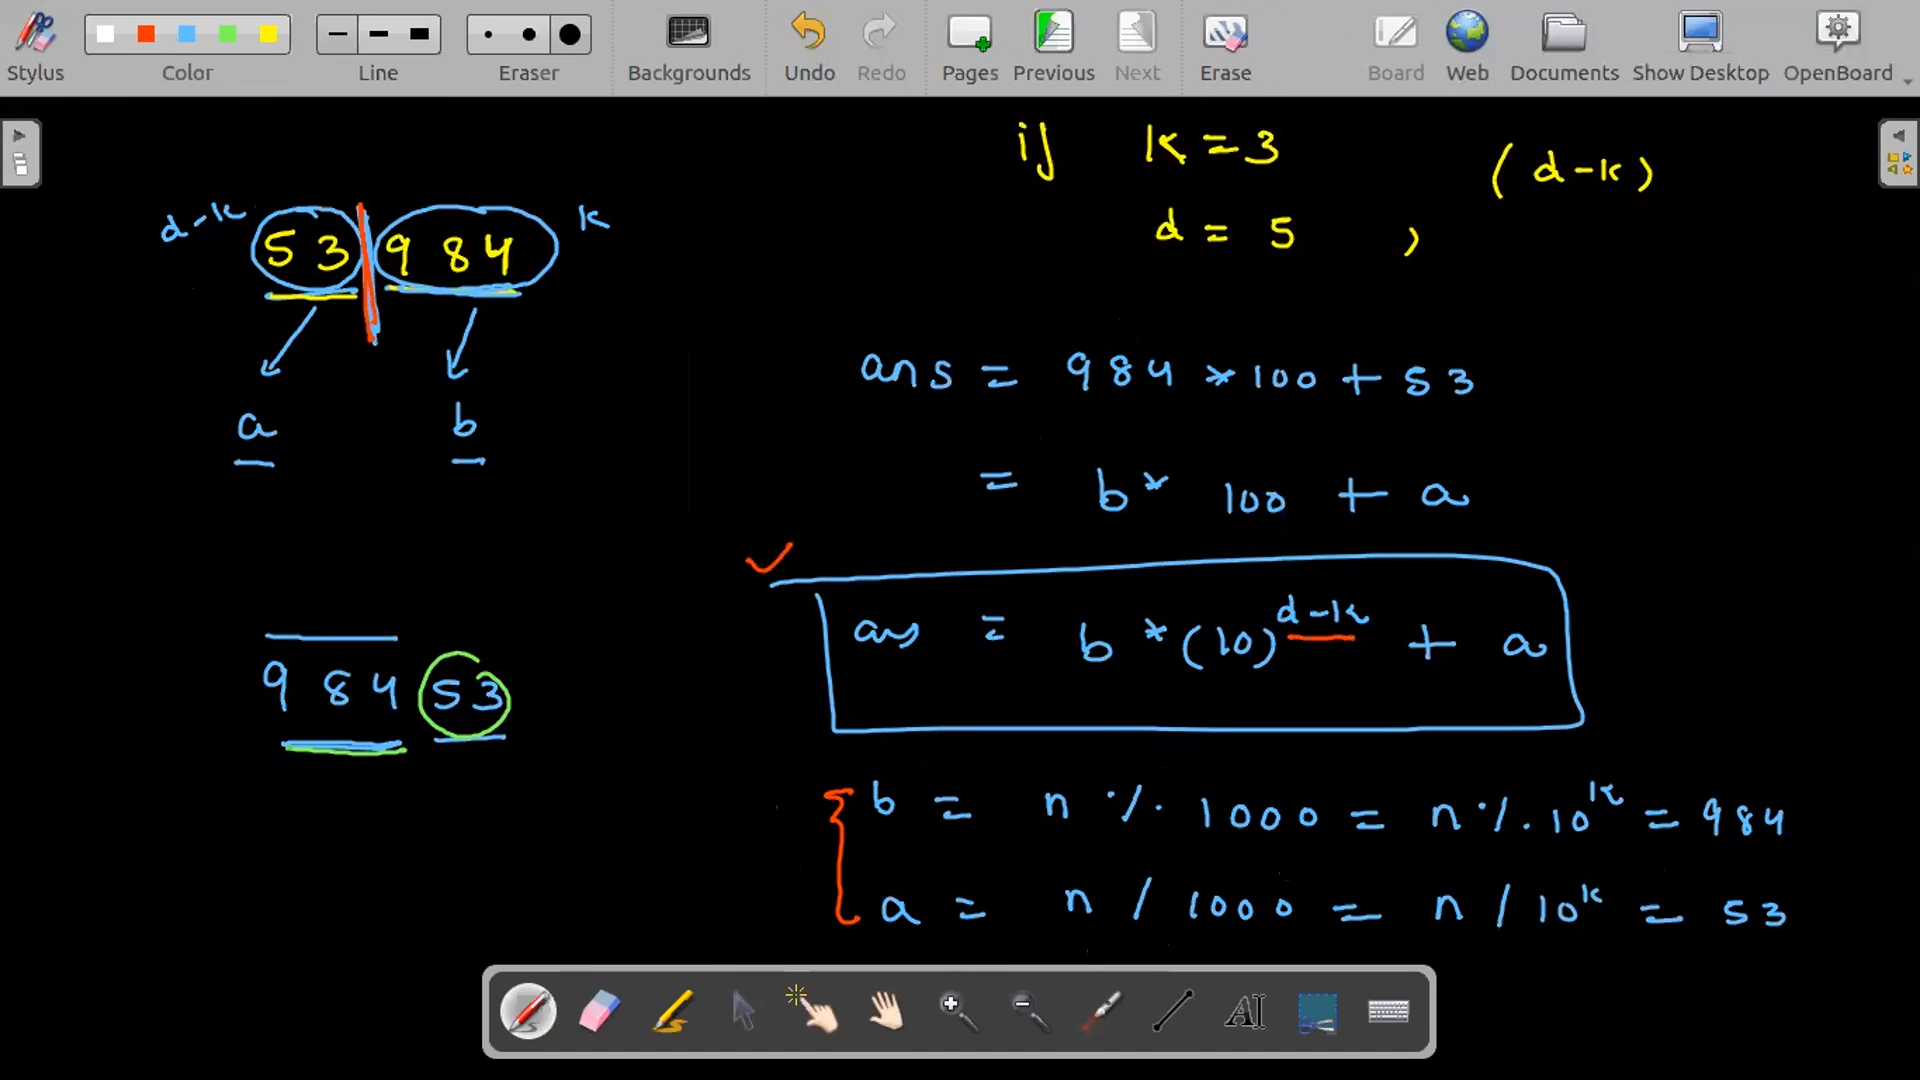 Stylus Color Line Eraser Backgrounds Undo Redo Pages Previous Next Erase Board Web Documents Show Desktop OpenBoard
if k = 3 (d-k)
d = 5 ,
d-k 53 984 k
a b
ans = 984 * 100 + 53
= b * 100 + a
ans = b * (10)^{d-k} + a
984 53
b = n % 1000 = n % 10^k = 984
a = n / 1000 = n / 10^k = 53
AI